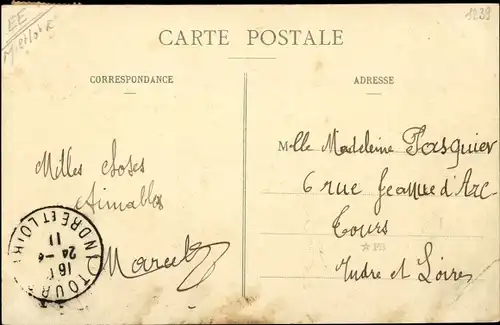 EE
1239
CARTE POSTALE
CORRESPONDANCE
ADRESSE
Milles choses
Aimables
Marcel
Mlle Madeleine Pasquier
6 rue Jeanne d'Arc
Tours
☆ PB
Indre et Loire
TOURS
INDRE ET LOIRE
16
24 - 6
11